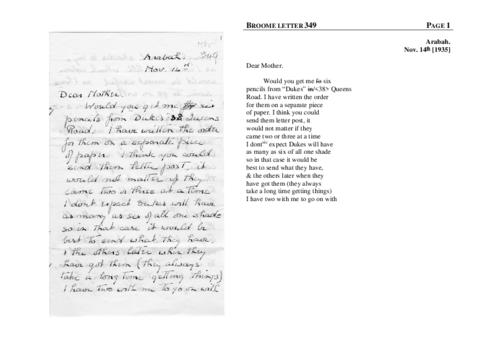 349
Arabah.
Nov. 14th
Dear Mother.
Would you get me six
pencils from Dukes 38 Queens
Road. I have written the order
for them on a separate piece
of paper. I think you could
send them letter post, it
would not matter if they
came two or three at a time
I dont expect Dukes will have
as many as six of all one shade
so in that case it would be
best to send what they have,
& the others later when they
have got them (they always
take a long time getting things)
I have two with me to go on with
BROOME LETTER 349 PAGE 1
Arabah.
Nov. 14th [1935]
Dear Mother.
Would you get me fo six
pencils from "Dukes" in/<38> Queens
Road. I have written the order
for them on a separate piece
of paper. I think you could
send them letter post, it
would not matter if they
came two or three at a time
I dont expect Dukes will have
as many as six of all one shade
so in that case it would be
best to send what they have,
& the others later when they
have got them (they always
take a long time getting things)
I have two with me to go on with